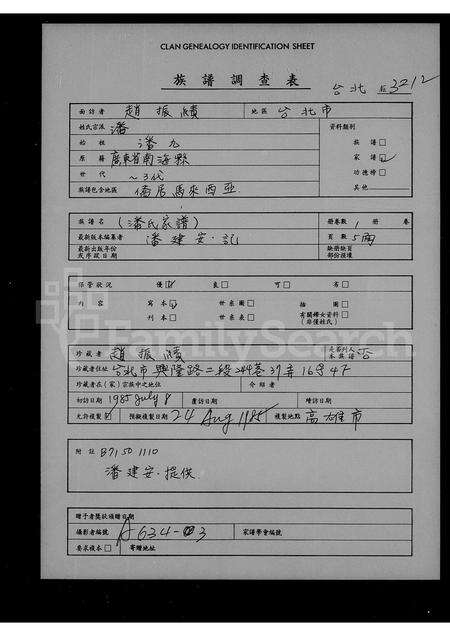 CLAN GENEALOGY IDENTIFICATION SHEET
族譜調查表
台北 3212
面訪者 趙振績 地區 台北市
姓氏宗派 潘 資料類別
始祖 潘九 族譜 □
原籍 廣東省南海縣 家譜 ☑
世代 ~3代 功德榜 □
族譜包含地區 僑居馬來西亞 其他
族譜名 (潘氏家譜) 冊卷數 1 冊 卷
最新版本編纂者 潘建安·記 頁數 5面
最新出版年份或序跋日期 缺冊缺頁部份說明
保管狀況 優 ☑ 良 □ 可 □ 劣 □
內容 寫本 ☑ 世系圖 □ 插圖 □
刊本 □ 世系表 □ 有關婦女資料 (非僅姓氏) □
FamilySearch
珍藏者 趙振績 是否列入本族譜 否
珍藏者住址 台北市興隆路二段244巷37弄16號4F
珍藏者在(家)宗族中之地位 介紹者
初訪日期 1985 July 8 複訪日期 續訪日期
允許複製 ☑ 預擬複製日期 24 Aug 1985 複製地點 高雄市
附註 B7150 1110
潘建安·提供
贈予者獎狀頒贈日期
攝影者編號 A634-03 家譜學會編號
要求複本 □ 寄贈地址